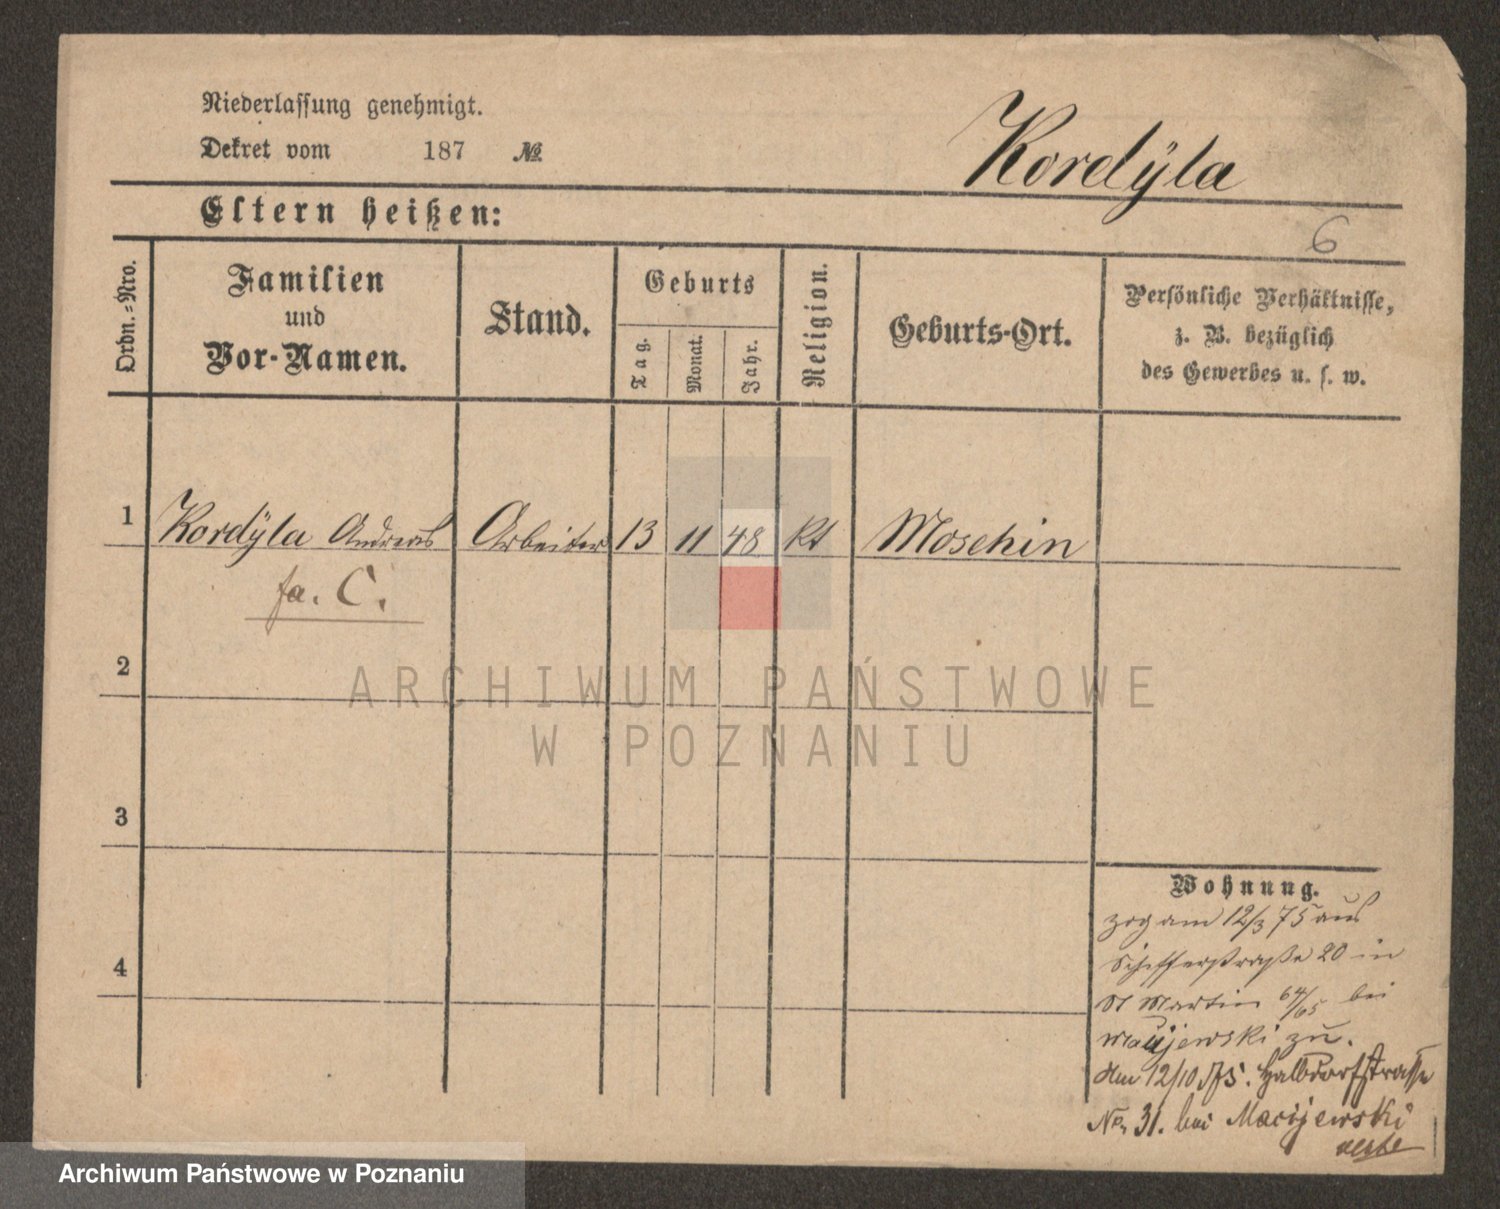 Niederlassung genehmigt.
Dekret vom 187 №
Kordÿla
Eltern heißen:
6
Ordn.-Nro.
Familien
und
Vor-Namen.
Stand.
Geburts
Tag.
Monat.
Jahr.
Religion.
Geburts-Ort.
Persönliche Verhältnisse,
z. B. bezüglich
des Gewerbes u. s. w.
1 Kordÿla Andreas Arbeiter 13 11 48 kt Moschin
fa. C.
2
ARCHIWUM PAŃSTWOWE
W POZNANIU
3
4
Wohnung.
zog am 12/3 75 aus
Schifferstraße 20 in
St Martin 64/65 bei
zu.
Am 12/10 75. Halbdorfstrasse
No. 31. bei Macijewski
Archiwum Państwowe w Poznaniu